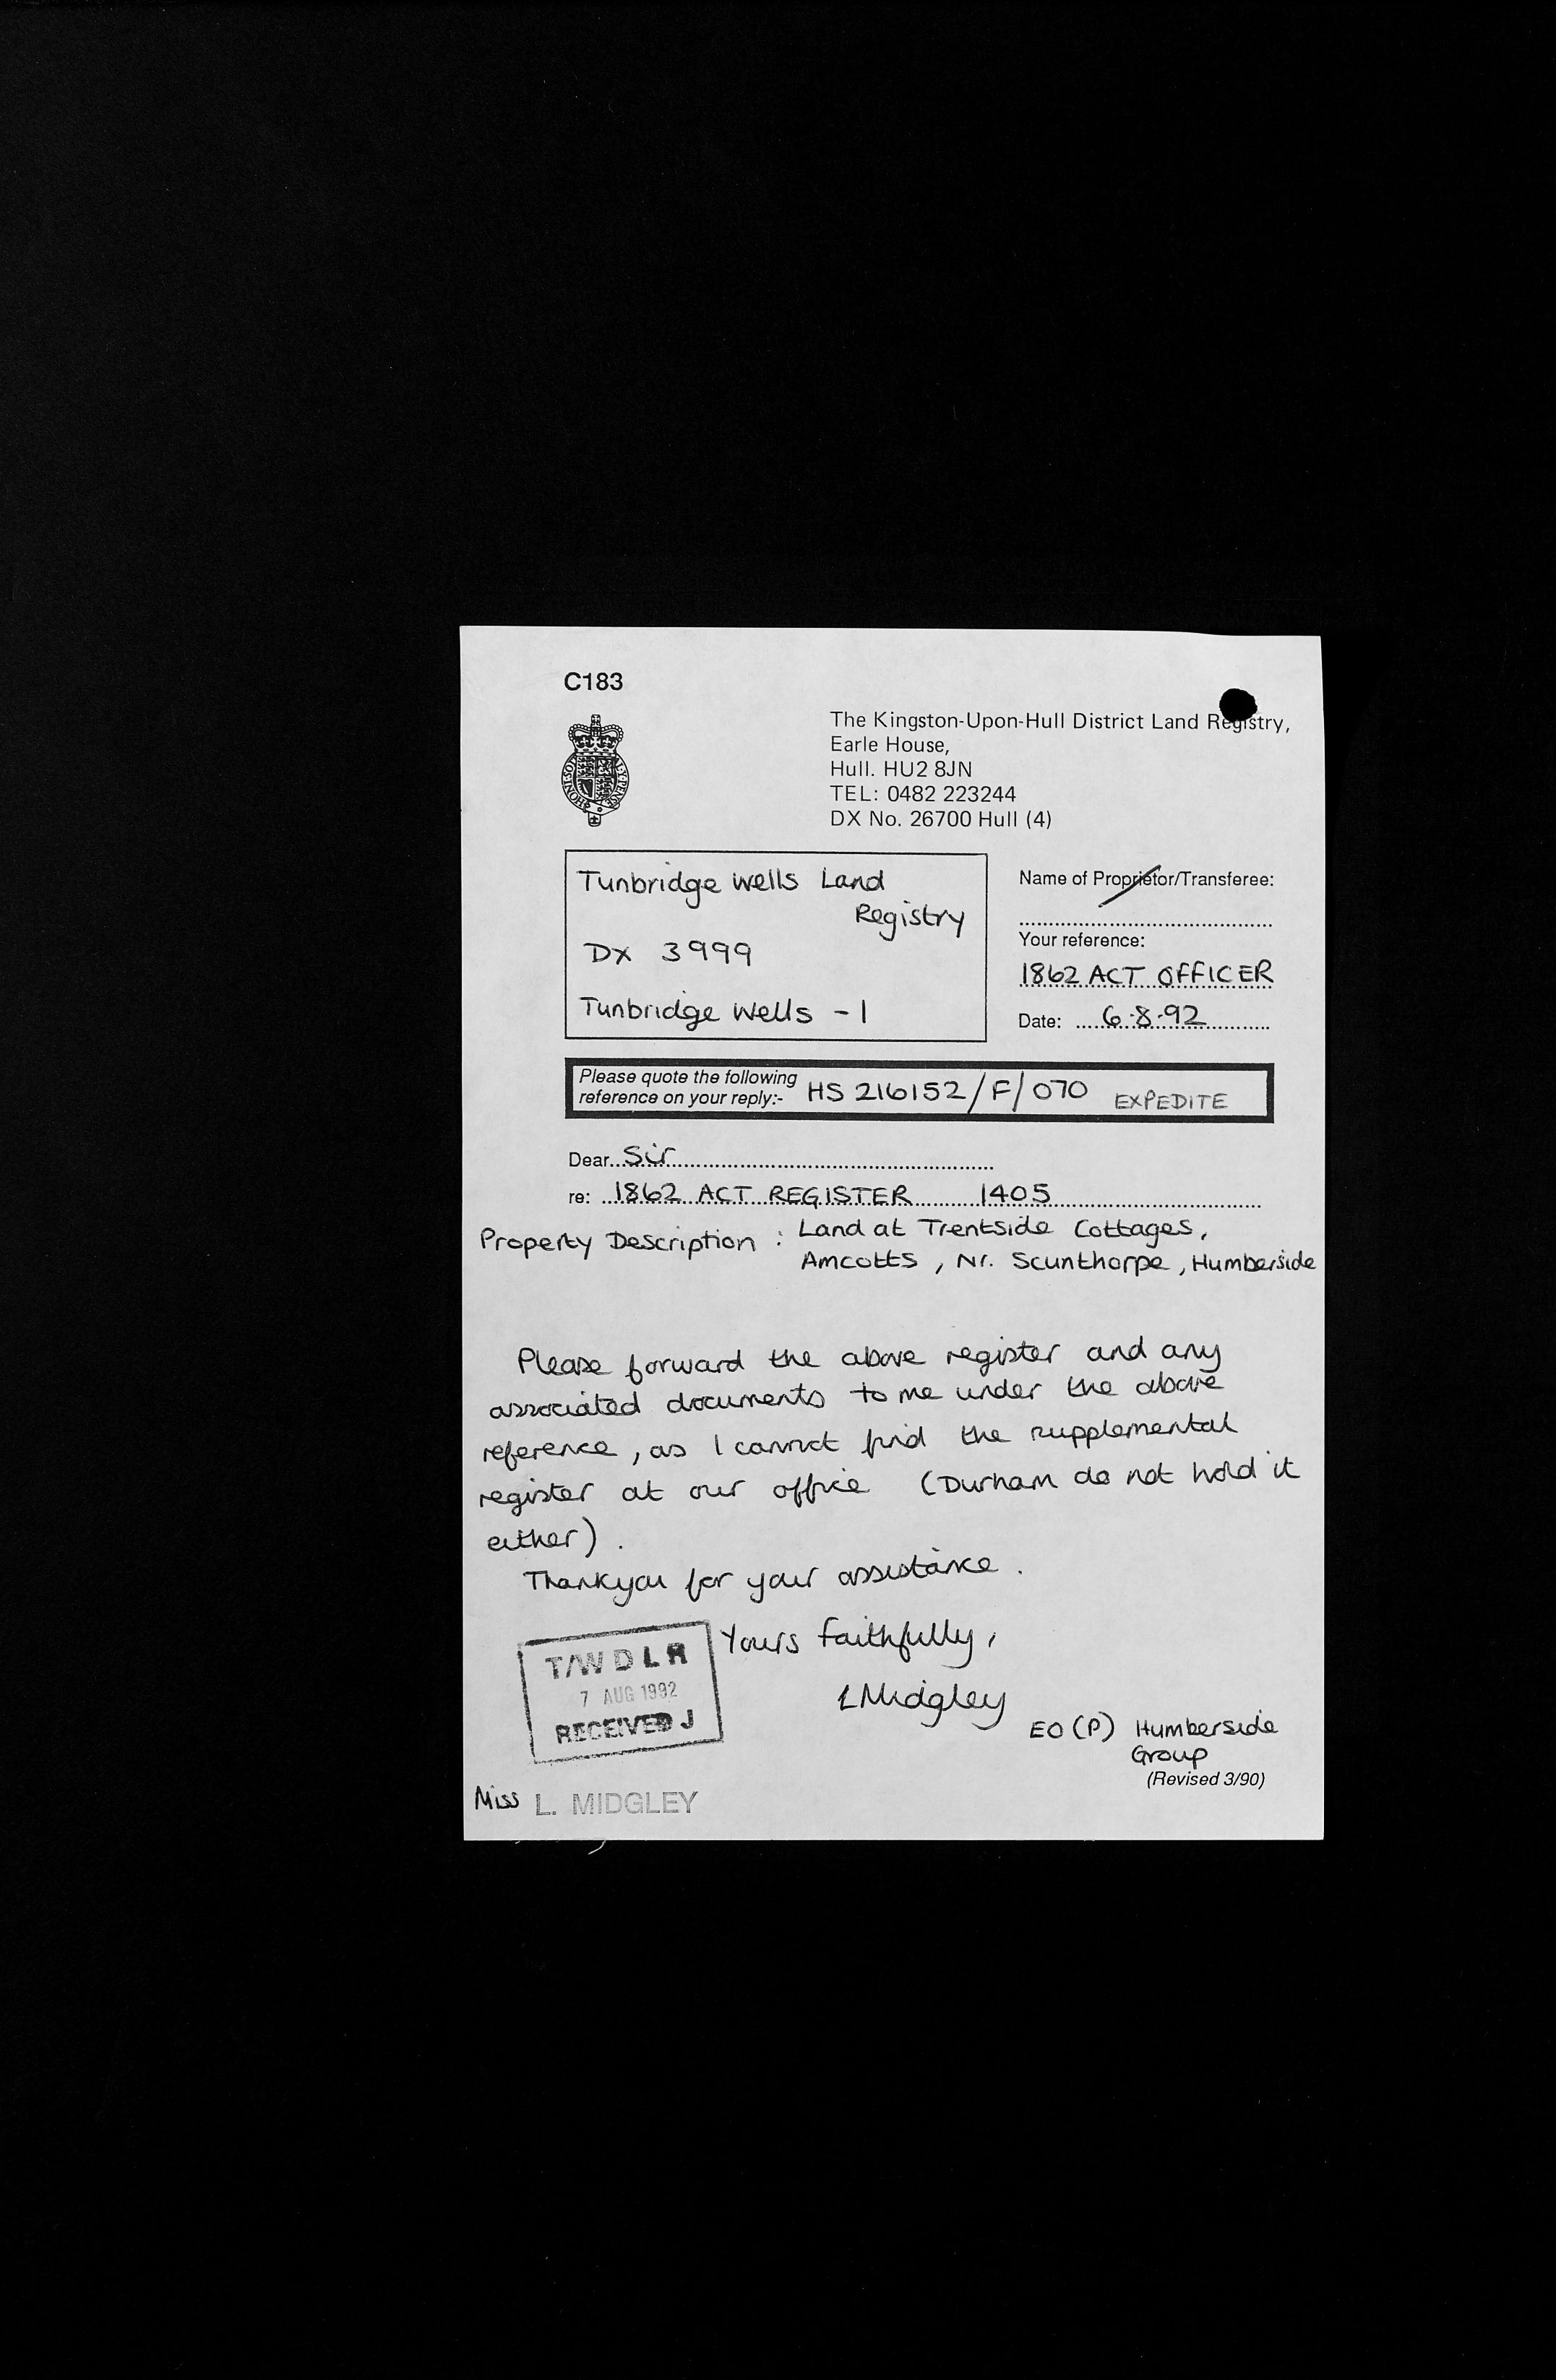 C183
The Kingston-Upon-Hull District Land Registry,
Earle House,
Hull. HU2 8JN
TEL: 0482 223244
DX No. 26700 Hull (4)
HONI·SOI
L·Y·PENSE
Tunbridge Wells Land
Registry
DX 3999
Tunbridge Wells - 1
Name of Proprietor/Transferee:
Your reference:
1862 ACT OFFICER
Date: 6·8·92
Please quote the following
reference on your reply:- HS 216152/F/070 EXPEDITE
Dear Sir
re: 1862 ACT REGISTER 1405
Property Description : Land at Trentside Cottages,
Amcotts, Nr. Scunthorpe, Humberside
Please forward the above register and any
associated documents to me under the above
reference, as I cannot find the supplemental
register at our office (Durham do not hold it
either).
Thankyou for your assistance.
Yours faithfully,
L Midgley
EO (P) Humberside
Group
(Revised 3/90)
T/W D L R
7 AUG 1992
RECEIVED J
Miss L. MIDGLEY